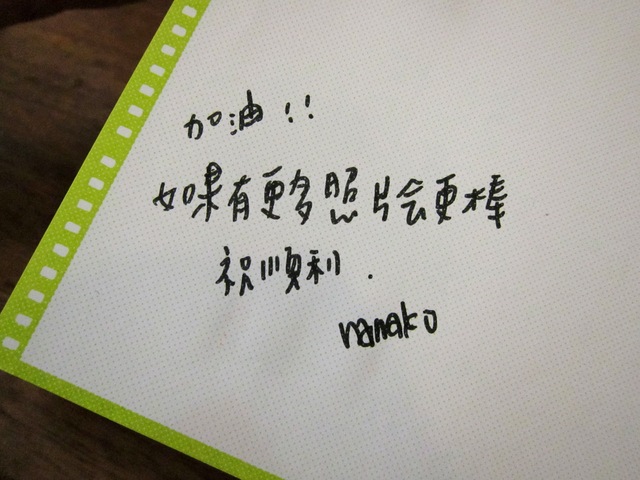 加油!!
如果有更多照片会更棒
祝順利.
nanako